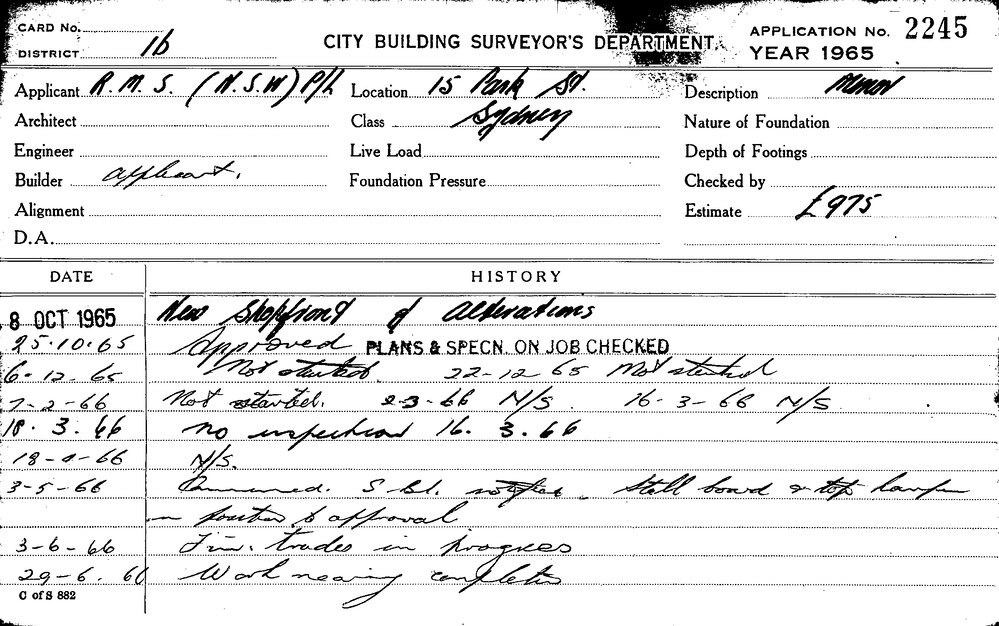 CARD No.
DISTRICT 16
CITY BUILDING SURVEYOR'S DEPARTMENT.
APPLICATION No. 2245
YEAR 1965
Applicant R.M.S. (N.S.W) P/L
Location 15 Park St.
Description Minor
Architect
Class Sydney
Nature of Foundation
Engineer
Live Load
Depth of Footings
Builder applicant.
Foundation Pressure
Checked by
Alignment
Estimate £975
D.A.
DATE HISTORY
8 OCT 1965 New Shopfront & Alterations
25.10.65 Approved PLANS & SPECN. ON JOB CHECKED
6-12-65 Not started. 22-12-65 Not started
7-2-66 Not started. 2-3-66 N/S. 16-3-66 N/S
18.3.66 No inspection 16.3.66
18-4-66 N/S.
3-5-66 Commenced. notified. Stall board & top
in position to approval
3-6-66 Fin. trades in progress
29-6.66 Work nearing completion
C of S 882